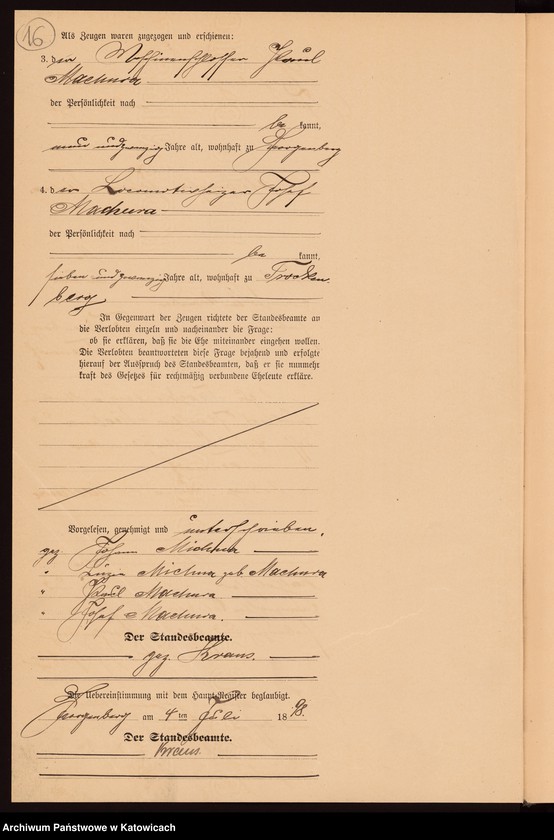 16
Als Zeugen waren zugezogen und erschienen:
3. der Maschinenschlosser Paul
Machura
der Persönlichkeit nach
be kannt,
neun undzwanzig Jahre alt, wohnhaft zu Georgenberg
4. der Locomotivheizer Josef
Machura
der Persönlichkeit nach
be kannt,
sieben undzwanzig Jahre alt, wohnhaft zu Trocken
berg
In Gegenwart der Zeugen richtete der Standesbeamte an
die Verlobten einzeln und nacheinander die Frage:
ob sie erklären, daß sie die Ehe miteinander eingehen wollen.
Die Verlobten beantworteten diese Frage bejahend und erfolgte
hierauf der Ausspruch des Standesbeamten, daß er sie nunmehr
kraft des Gesetzes für rechtmäßig verbundene Eheleute erkläre.
Vorgelesen, genehmigt und unterschrieben.
gez Johann Michna
" Luzia Michna geb Machura
" Paul Machura
" Josef Machura.
Der Standesbeamte.
gez. Kraus.
Die Uebereinstimmung mit dem Haupt-Register beglaubigt.
Georgenberg am 4 ten Juli 18 98.
Der Standesbeamte.
Kraus.
Archiwum Państwowe w Katowicach